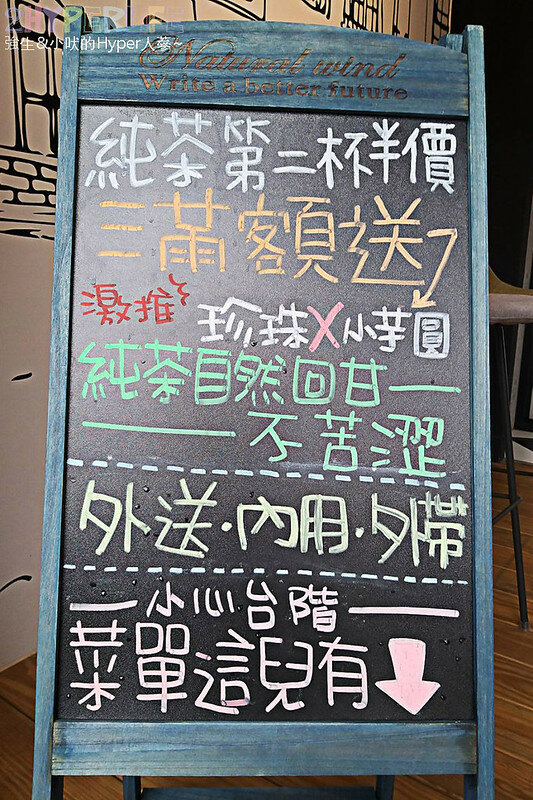 HYPERLIFE
強生&小吠的Hyper人蔘~
Natural wind
Write a better future
純茶第二杯半價
三滿額送
激推 珍珠X小芋圓
純茶自然回甘一
一不苦澀
外送·內用·外帶
一小心台階一
菜單這兒有